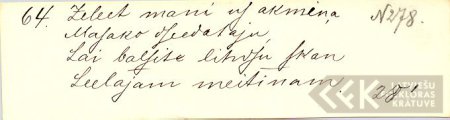 64. Zeleet mani uz akmiņa N278.
Masako dseedataju,
Lai balsite libdsu skan
Leelajam meitinam. 28¹
LATVIEŠU
FOLKLORAS
KRATUVE